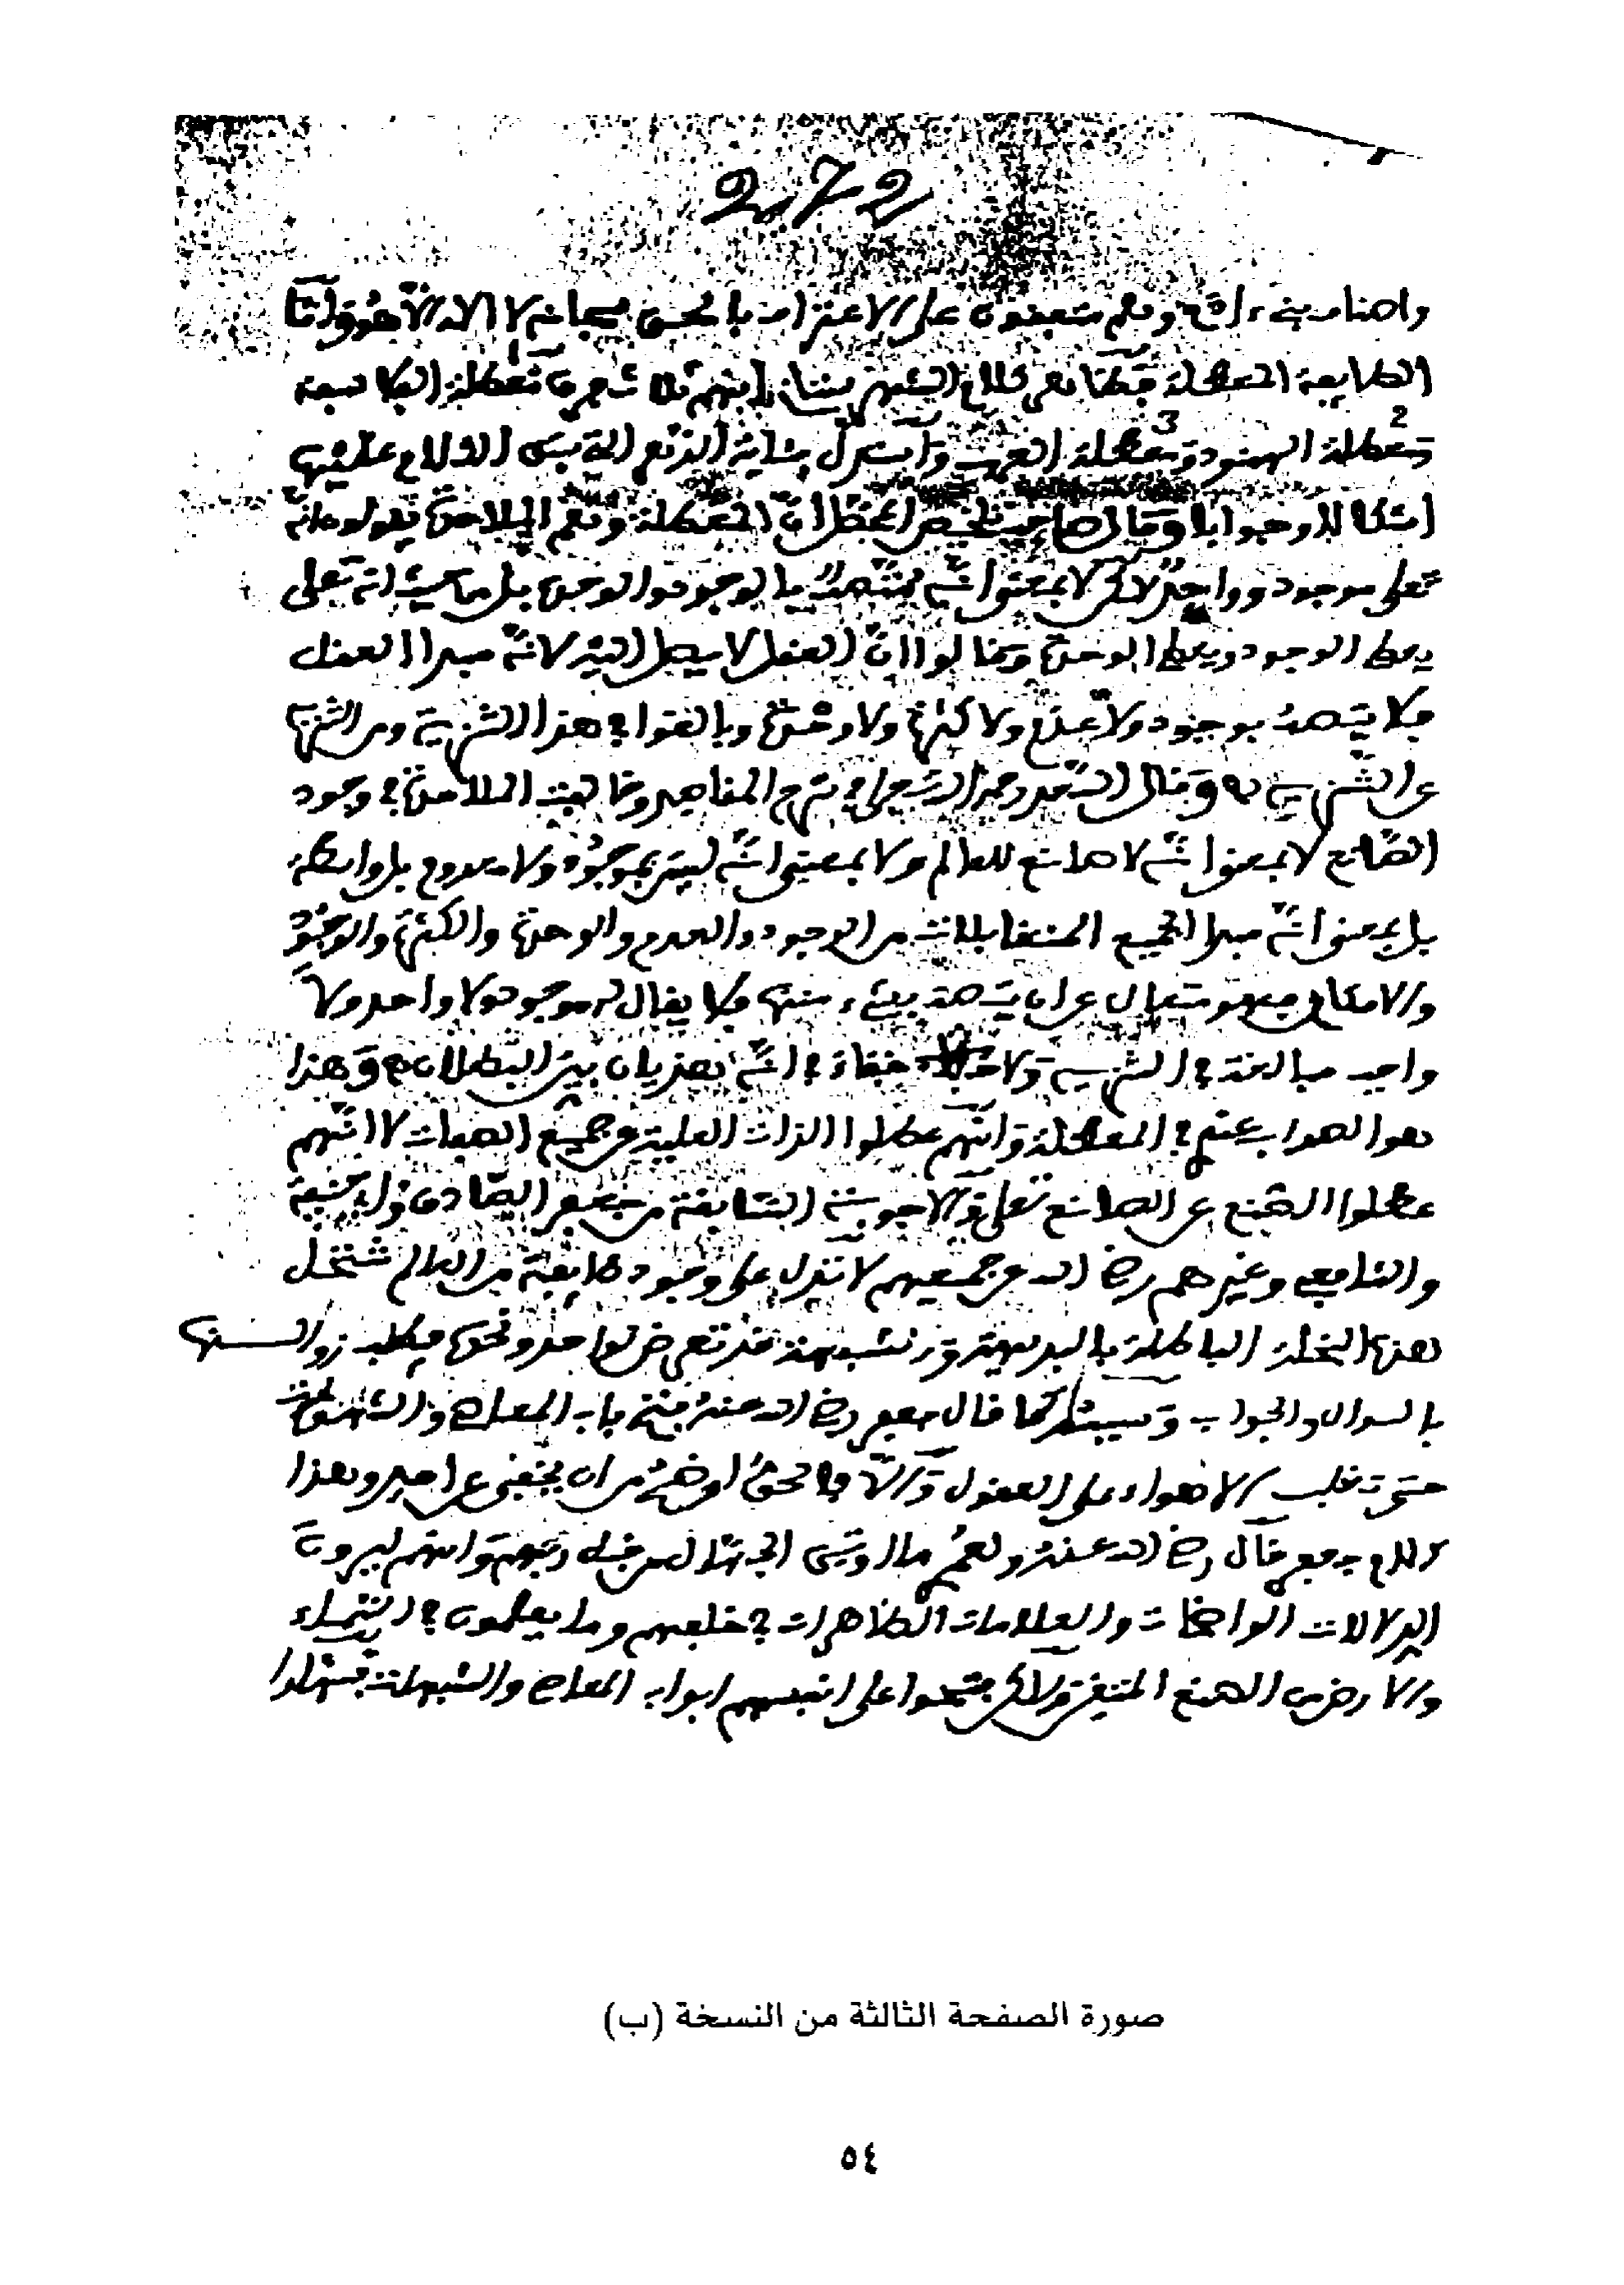 2072
واصنامهم وهم متفقون على الاعتراف بالحق سبحانه لا اله الا هو وأما
الطايفة المعطلة فظاهر كلام الشهرستاني انهم ثلاث فرق معطلة الفلاسفة
2 3
ومعطلة الهنود ومعطلة العرب الكلام عليها
اشكالا وجوابا وقال صاحب أن المعطلة وهم الملاحدة يقولون انه
تعلى موجود وواحد لاكن لا بمعنى أنه متصف بالوجود والوحدة بل من حيث انه تعلى
يعطي الوجود ويعطي الوحدة وقالوا ان العقل لا يصل اليه لانه مبدأ العقل
فلا يتصف بوجود ولا عدم ولا كثرة ولا وحدة وبالغوا في هذا التنزيه ومن التنزيه
عن التنزيه وقال السعد رحمه الله تعلى في شرح المقاصد وخالفت الملاحدة في وجود
الصانع لا بمعنى أنه لا صانع للعالم ولا بمعنى أنه ليس بموجود ولا معدوم بل واسطة
بل بمعنى أنه مبدأ لجميع المتقابلات من الوجود والعدم والوحدة والكثرة والوجوب
والامكان فهو متعال عن ان يتصف بشيء منها فلا يقال له موجود ولا واحد ولا
واجب مبالغة في التنزيه ولا خفاء في أنه هذيان بين البطلان وهذا
هو الصواب عنهم في المعطلة وانهم عطلوا الذات العلية عن جميع الصفات لا انهم
عطلوا الصنع عن الصانع تعلى والاجوبة السابقة من جعفر الصادق وابي حنيفة
والشافعي وغيرهم رضي الله عن جميعهم لا تدل على وجود طايفة من العالم تنتحل
هذه النحلة الباطلة بالبديهة واذ الشبهة قد تعرض لواحد ونحوه فيطلب زوالها
بالسؤال والجواب كما قال جعفر رضي الله عنه بفتح باب المعاصي والشهوات
حتى تغلب الاهواء على العقول والا فالحق اوضح من ان يخفى على احد وهذا
كلام جعفر قال رضي الله عنه ولعمري ما اوتي الجهال من قبل ربهم وانهم ليرون
الدلالات الواضحات والعلامات الظاهرات في خلقهم وما يعلمون في السماء
والارض من الصنع المتقن ولاكن فتحوا على انفسهم ابواب المعاصي والشهوات فسهلوا
صورة الصفحة الثالثة من النسخة (ب)
٥٤